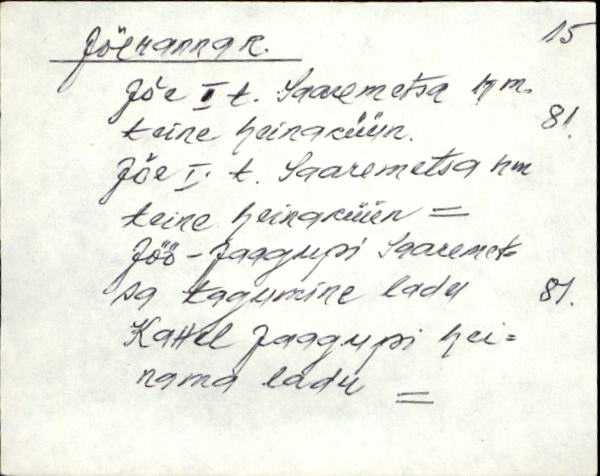 Jõeranna k. 15
Jõe II t. Saaremetsa hm.
teine heinaküün. 81.
Jõe I. t. Saaremetsa hm
teine heinaküün =
Jöö-Jaagupi Saaremet-
sa tagumine ladu 81.
Kattel Jaagupi hei=
nama ladu =